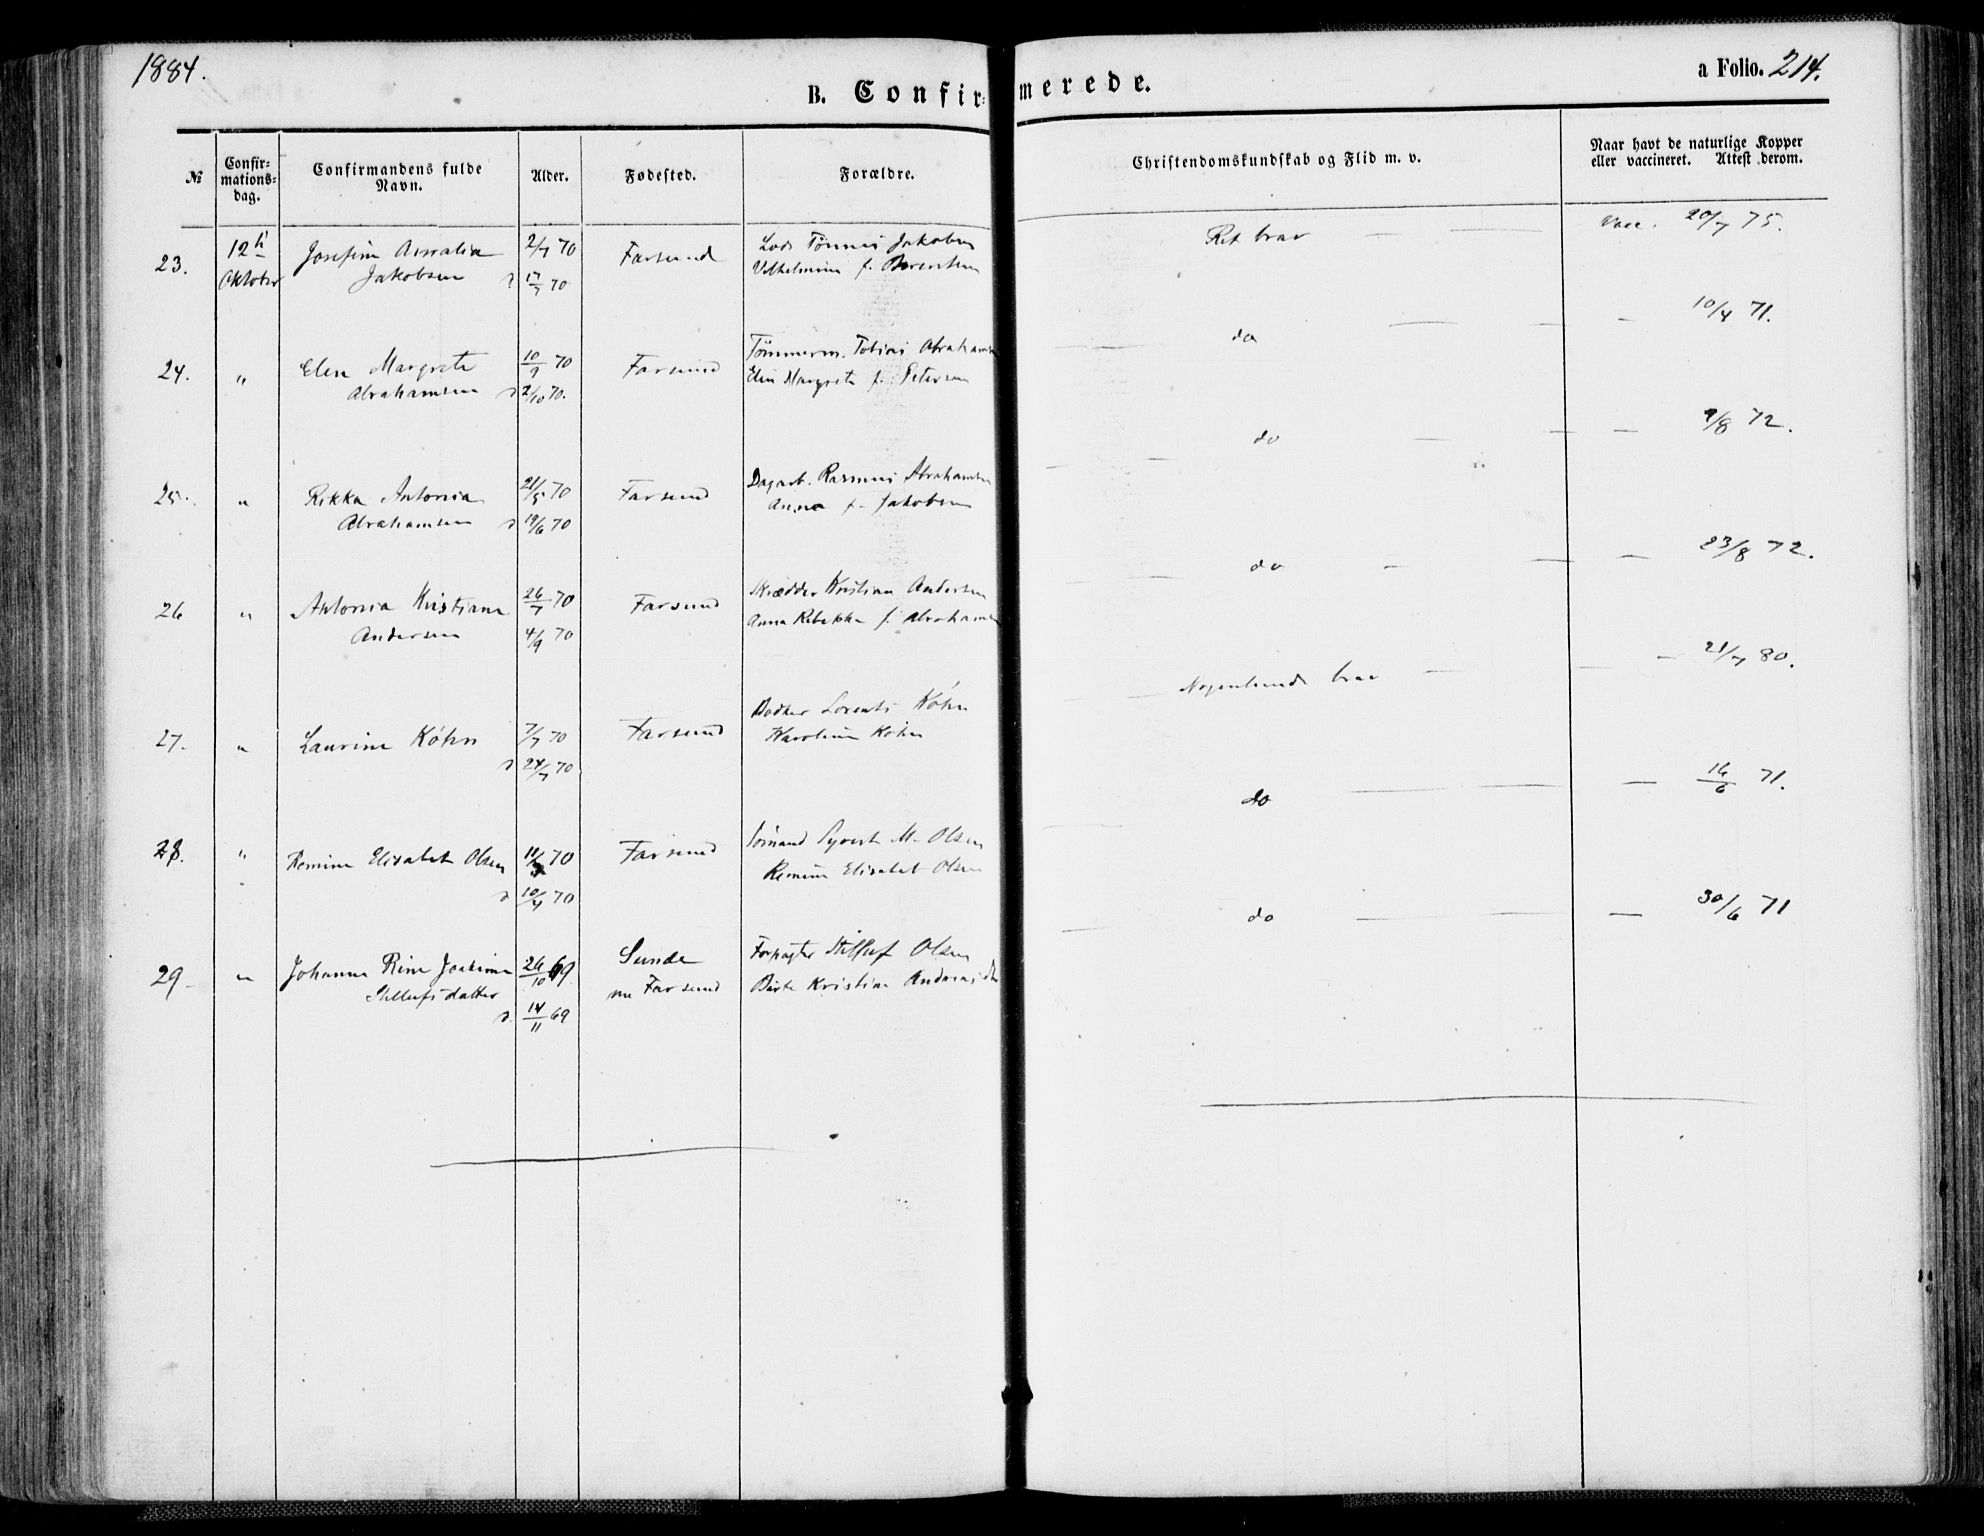 1884.
B. Confir=
merede.
a Folio. 214.
№
Confir=
mations=
dag.
Confirmandens fulde
Navn.
Alder.
Fødested.
Forældre.
Christendomskundskab og Flid m. v.
Naar havt de naturlige Kopper
eller vaccineret. Attest derom.
23. 12 Josefine Amalia 2/7 70 Farsund Lods Tønnes Jakobsen Ret brav — — Vacc. 20/7 75.
Oktober Jakobsen 17/7 70 Vilhelmine f. Berentsen
24. " Elen Margrete 10/9 70 Farsund Tømmerm. Tobias Abrahamsen do — — — 10/4 71.
Abrahamsen 2/10 70. Elen Margrete f. Petersen
25. " Rikka Antonia 21/5 70 Farsund Dagarb. Rasmus Abrahamsen do — — — 9/8 72.
Abrahamsen 19/6 70 Anna f. Jakobsen
26 " Antonia Kristiane 26/7 70 Farsund Skrædder Kristian Andersen do — — — 23/8 72.
Andersen 4/9 70 Anna Rebekka f. Abrahamsen
27. " Laurine Köhn 7/7 70 Farsund Bødker Lorents Köhn Nogenlunde brav — — — 21/7 80.
24/7 70 Karoline Köhn
28. " Remine Elisabet Olsen 11/3 70 Farsund Sømand Syvert M. Olsen do — — — 16/6 71.
10/4 70 Remine Elisabet Olsen
29 " Johanne Rine Joakime 26/10 69. Sunde Forpagter Stilluf Olsen do — — — 30/6 71
Stillufsdatter 14/11 69 Farsund Birte Kristine Andreasdtr